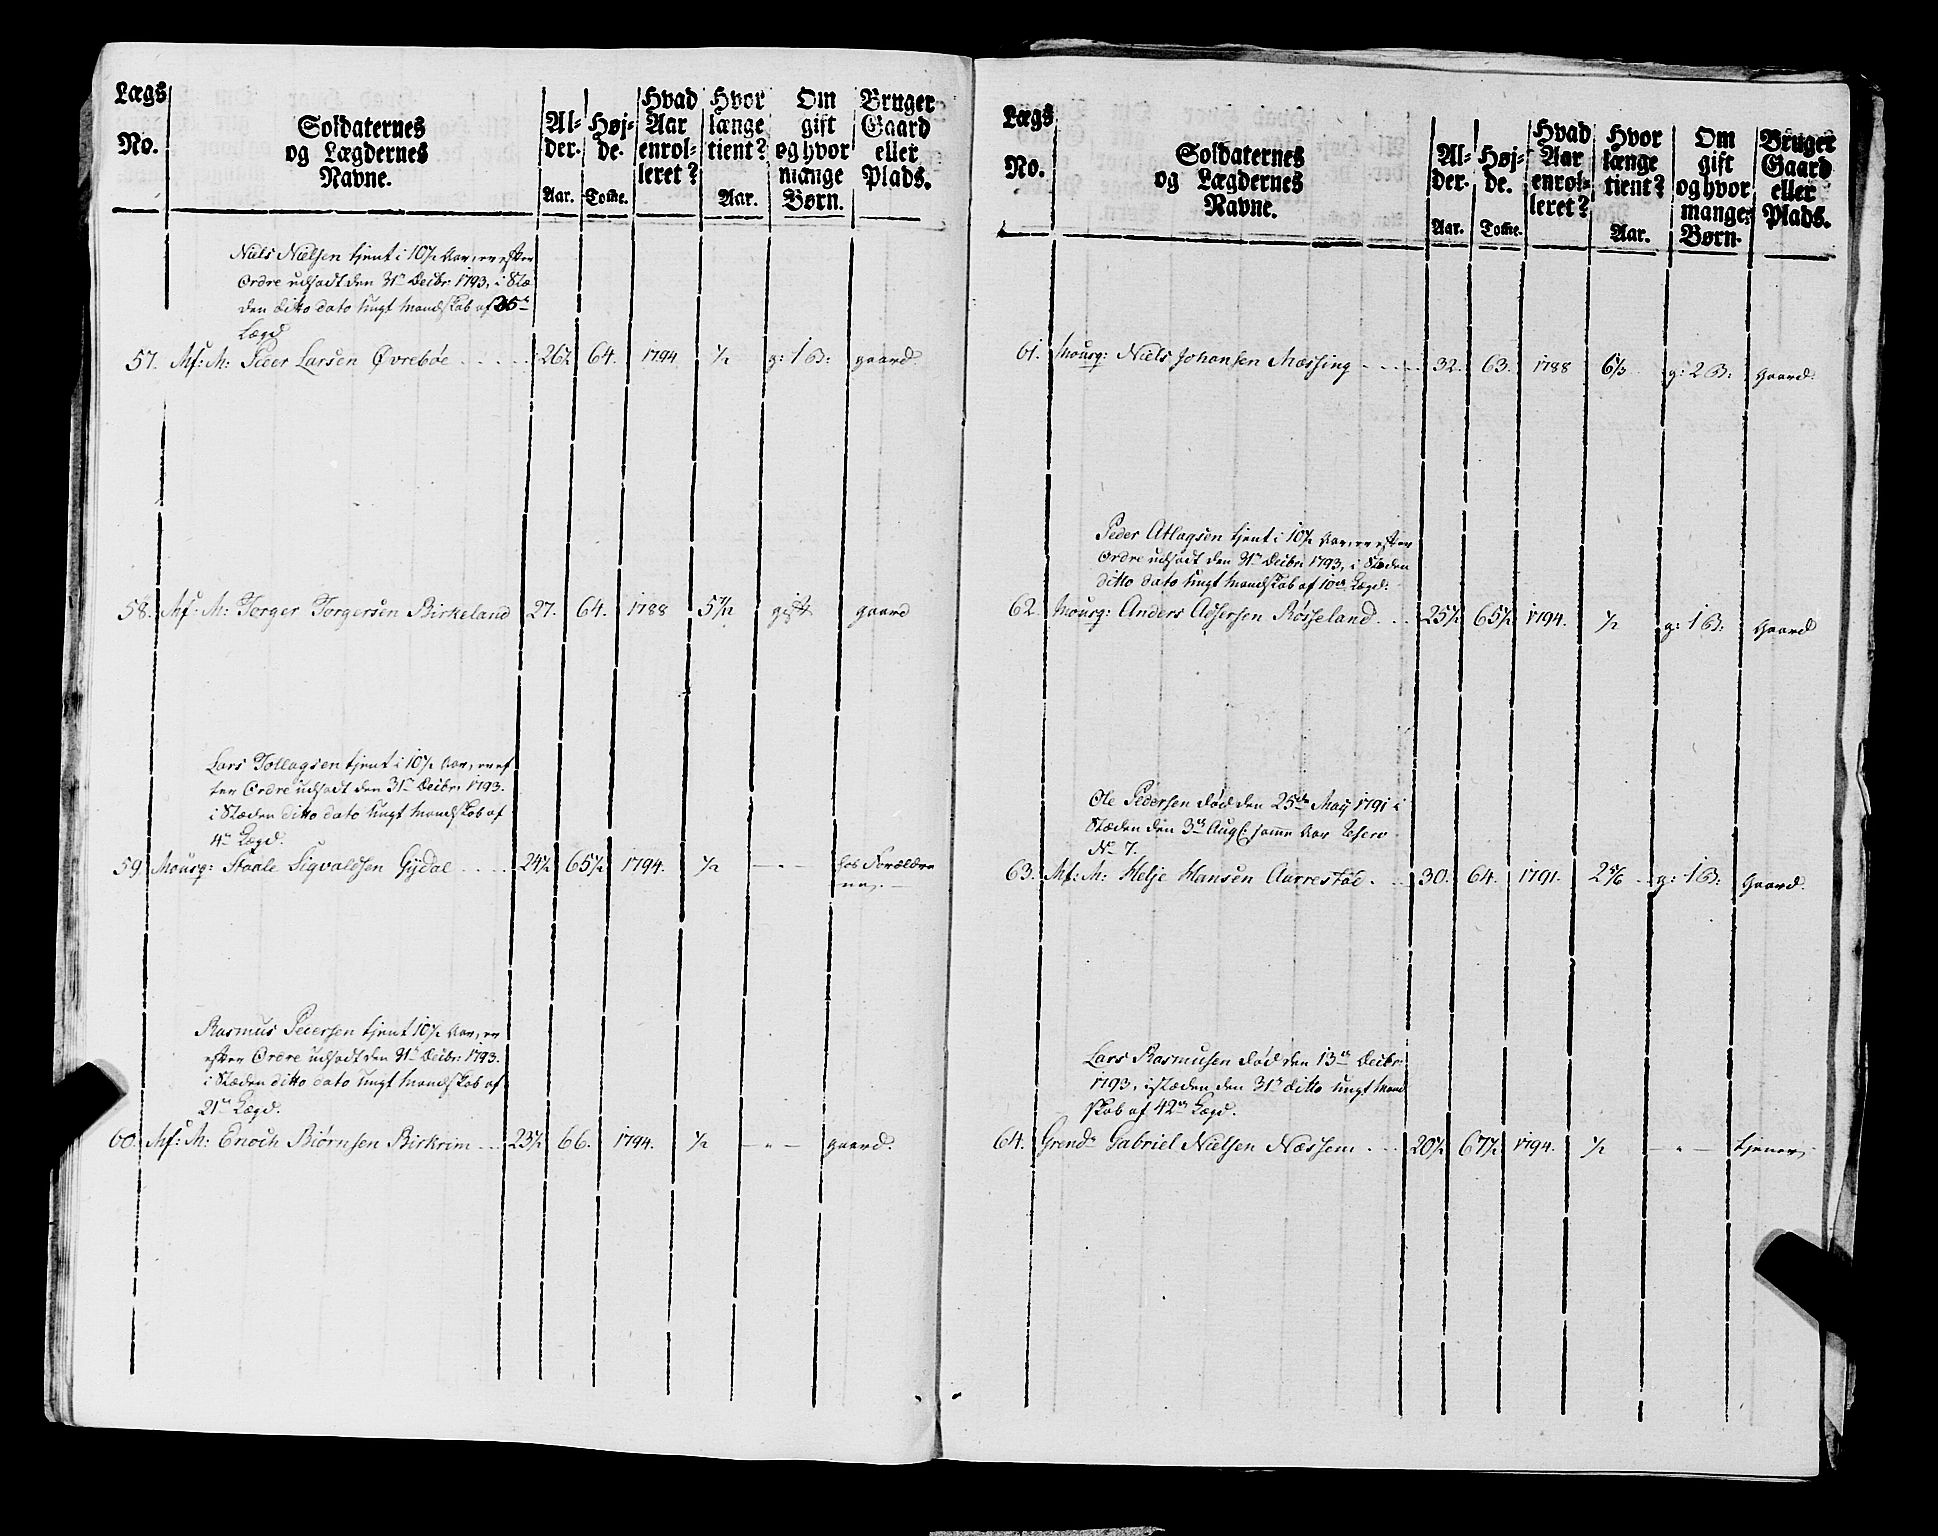 Lægs No.
Soldaternes og Lægdernes Navne.
Alder. Aar.
Højde. Tomme.
Hvad Aar enrolleret?
Hvor længe tient? Aar.
Om gift og hvor mange Børn.
Bruger Gaard eller Plads.
Niels Nielsen tjent i 10½ Aar, er efter
Ordre udsadt den 31te Decbr: 1793, i Stæ
den ditto dato ungt Mandskab af 35te
Lægd
57. Mf: M: Peer Larsen Øvrebøe 26½ 64. 1794 ½ g: 1 B: gaard.
58. Mf: M: Torger Torgersen Birkeland 27. 64. 1788 5½ gift gaard
Lars Tollagsen tjent i 10½ Aar, er ef
ter Ordre udsadt den 31te Decbr: 1793.
i Stæden ditto dato ungt Mandskab af
4de Lægd.
59 Mousq: Staale Sigvaldsen Gydal 24½ 65½ 1794. ½ — " — hos Forældre
ne. —
Rasmus Pedersen tjent 10½ Aar, er
efter Ordre udsadt den 31te Decbr: 1793.
i Stæden ditto dato ungt Mandskab af
21de Lægd.
60. Mf: M: Enoch Biørnsen Birkrim 23½ 66. 1794. ½ — " — gaard.
Lægs No.
Soldaternes og Lægdernes Navne.
Alder. Aar.
Højde. Tomme.
Hvad Aar enrolleret?
Hvor længe tient? Aar.
Om gift og hvor mange Børn.
Bruger Gaard eller Plads.
61. Mousq: Niels Johansen Mæssing 32. 63. 1788 6⅓ g: 2 B: Gaard.
Peder Atlagsen tjent i 10½ Aar, er efter
Ordre udsadt den 31te Decbr: 1793, i Stæden
ditto dato ungt Mandskab af 10de Lægd.
62. Mousq: Anders Assersen Røsseland 25½ 65½ 1794. ½ g: 1 B: Gaard
Ole Pedersen død den 25de May 1791 i
Stæden den 3de Aug: samme Aar Reserv
No 7.
63. Mf: M: Helje Hansen Aarrestad 30. 64. 1791. 2 5/6 g: 1 B: Gaard.
Lars Rasmusen død den 13de Decbr:
1793, istæden den 31te ditto ungt Mand
skab af 42de Lægd.
64. Grend: Gabriel Nielsen Næssem 20½ 67½ 1794. ½ — " — tjener.